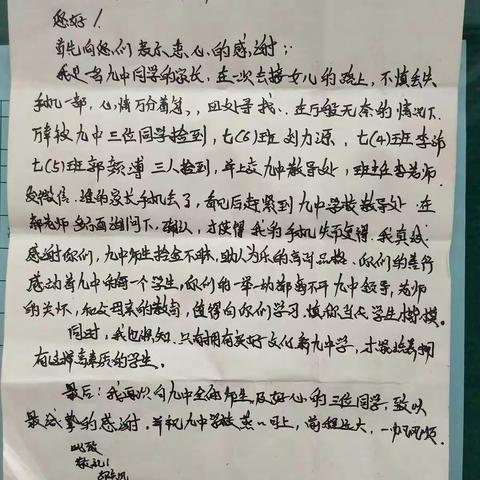 您好！
首先向您们表示衷心的感谢：
我是一名九中同学的家长，在一次去接女儿的路上，不慎丢失
手机一部，心情万分着急，四处寻找，在万般无奈的情况下
万幸被九中三位同学捡到，七(6)班刘力源，七(4)班李沛
七(5)班郭颜溥三人捡到，并上交九中教导处，班主任李老师
发微信，谁的家长手机丢了，看见后赶紧到九中学校教导处，在
郝老师多方面询问下，确认，才使得我的手机失而复得，我真诚
感谢你们，九中师生拾金不昧，助人为乐的高尚品格，你们的善行
感动着九中每一个学生，你们的一举一动都离不开九中领导，老师
的关怀，和父母亲的教育，值得向你们学习，堪称当代学生楷模。
同时，我也深知，只有拥有美好文化新九中学，才能培养拥
有这样高素质的学生。
最后：我再次向九中全体师生，及好心的三位同学，致以
最诚挚的感谢，并祝九中学校蒸蒸日上，前程远大，一帆风顺
此致
敬礼！